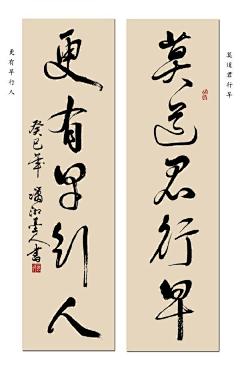 莫道君行早
莫道君行早
更有早行人
癸巳年
更有早行人